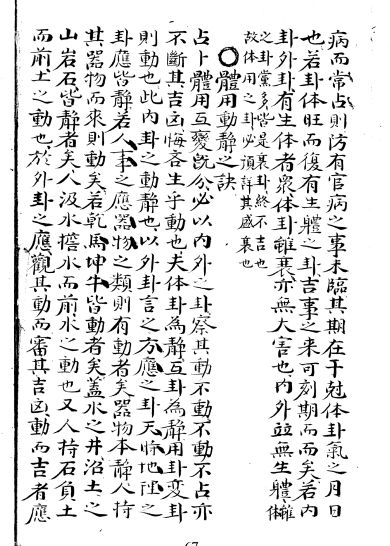 病而常占則防有官病之事未臨其期在于尅体卦氣之月日
也若卦体旺而復有生體之卦吉事之来可刻期而而矣若内
卦外卦有生体者衆体卦雖衰亦無大害也内外並無生體雖
之卦黨多皆是衰卦終不吉也
故体用之卦必須詳其盛衰也
〇體用動静之訣
占卜體用互變既分必以内外之卦察其動不動不動不占亦
不斷其吉凶悔吝生乎動也夫体卦為静互卦為静用卦変卦
則動也此内卦之動静也以外卦言之方應之卦天時地理之
卦應皆静若人事之應器物之類則有動者矣器物本静人持
其器物而来則動矣若乾馬坤牛皆動者矣蓋水之井沼土之
山岩石皆静者矣人汲水擔水而前水之動也又人持石負土
而前土之動也於外卦之應觀其動而審其吉凶動而吉者應